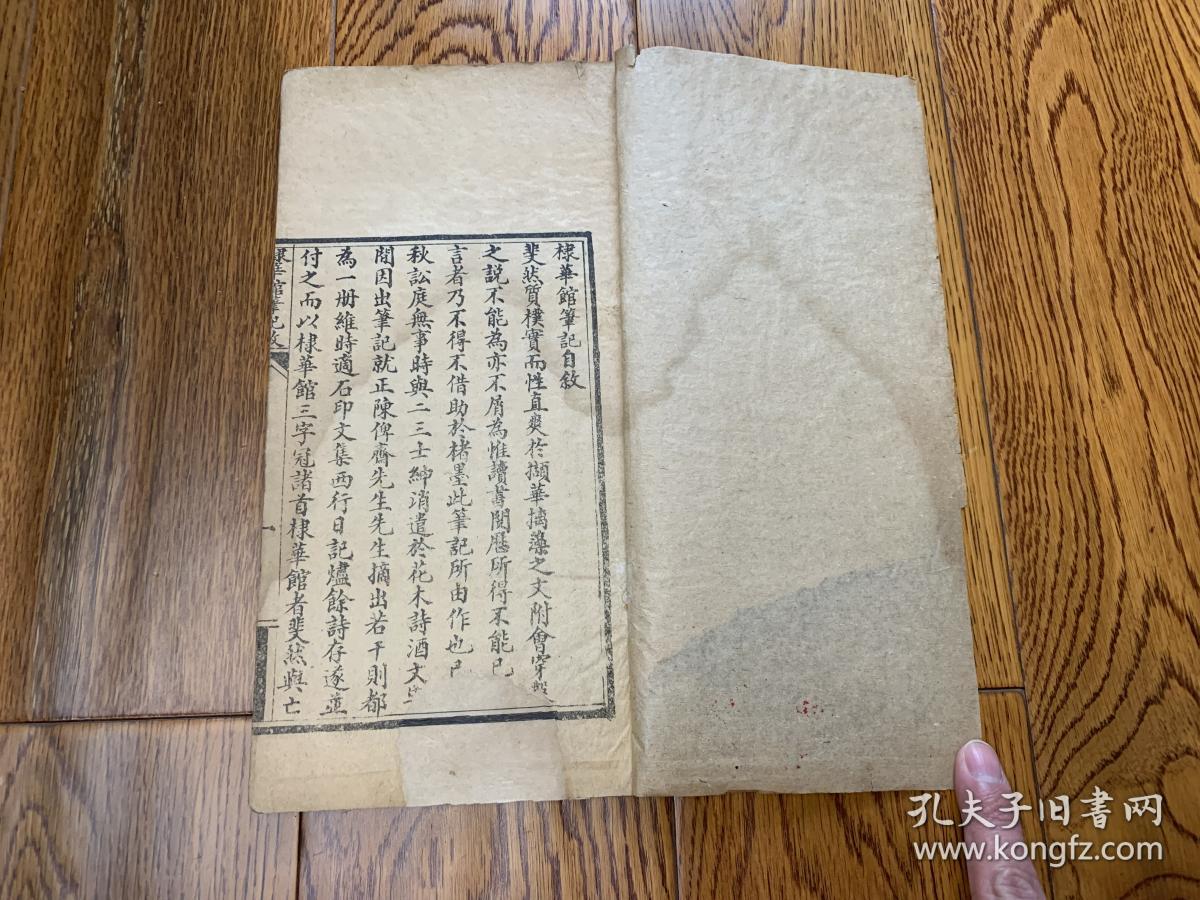 棣華館筆記自敘
斐然質樸實而性直爽於擷華摛藻之文附會穿鑿
之說不能為亦不屑為惟讀書閱歷所得不能已
言者乃不得不借助於楮墨此筆記所由作也
秋訟庭無事時與二三士紳消遣於花木詩酒文
閒因出筆記就正陳俾齋先生先生摘出若干則都
為一册維時適石印文集西行日記燼餘詩存遂並
付之而以棣華館三字冠諸首棣華館者斐然與亡
棣華館筆記敘
一
孔夫子旧书网
www.kongfz.com